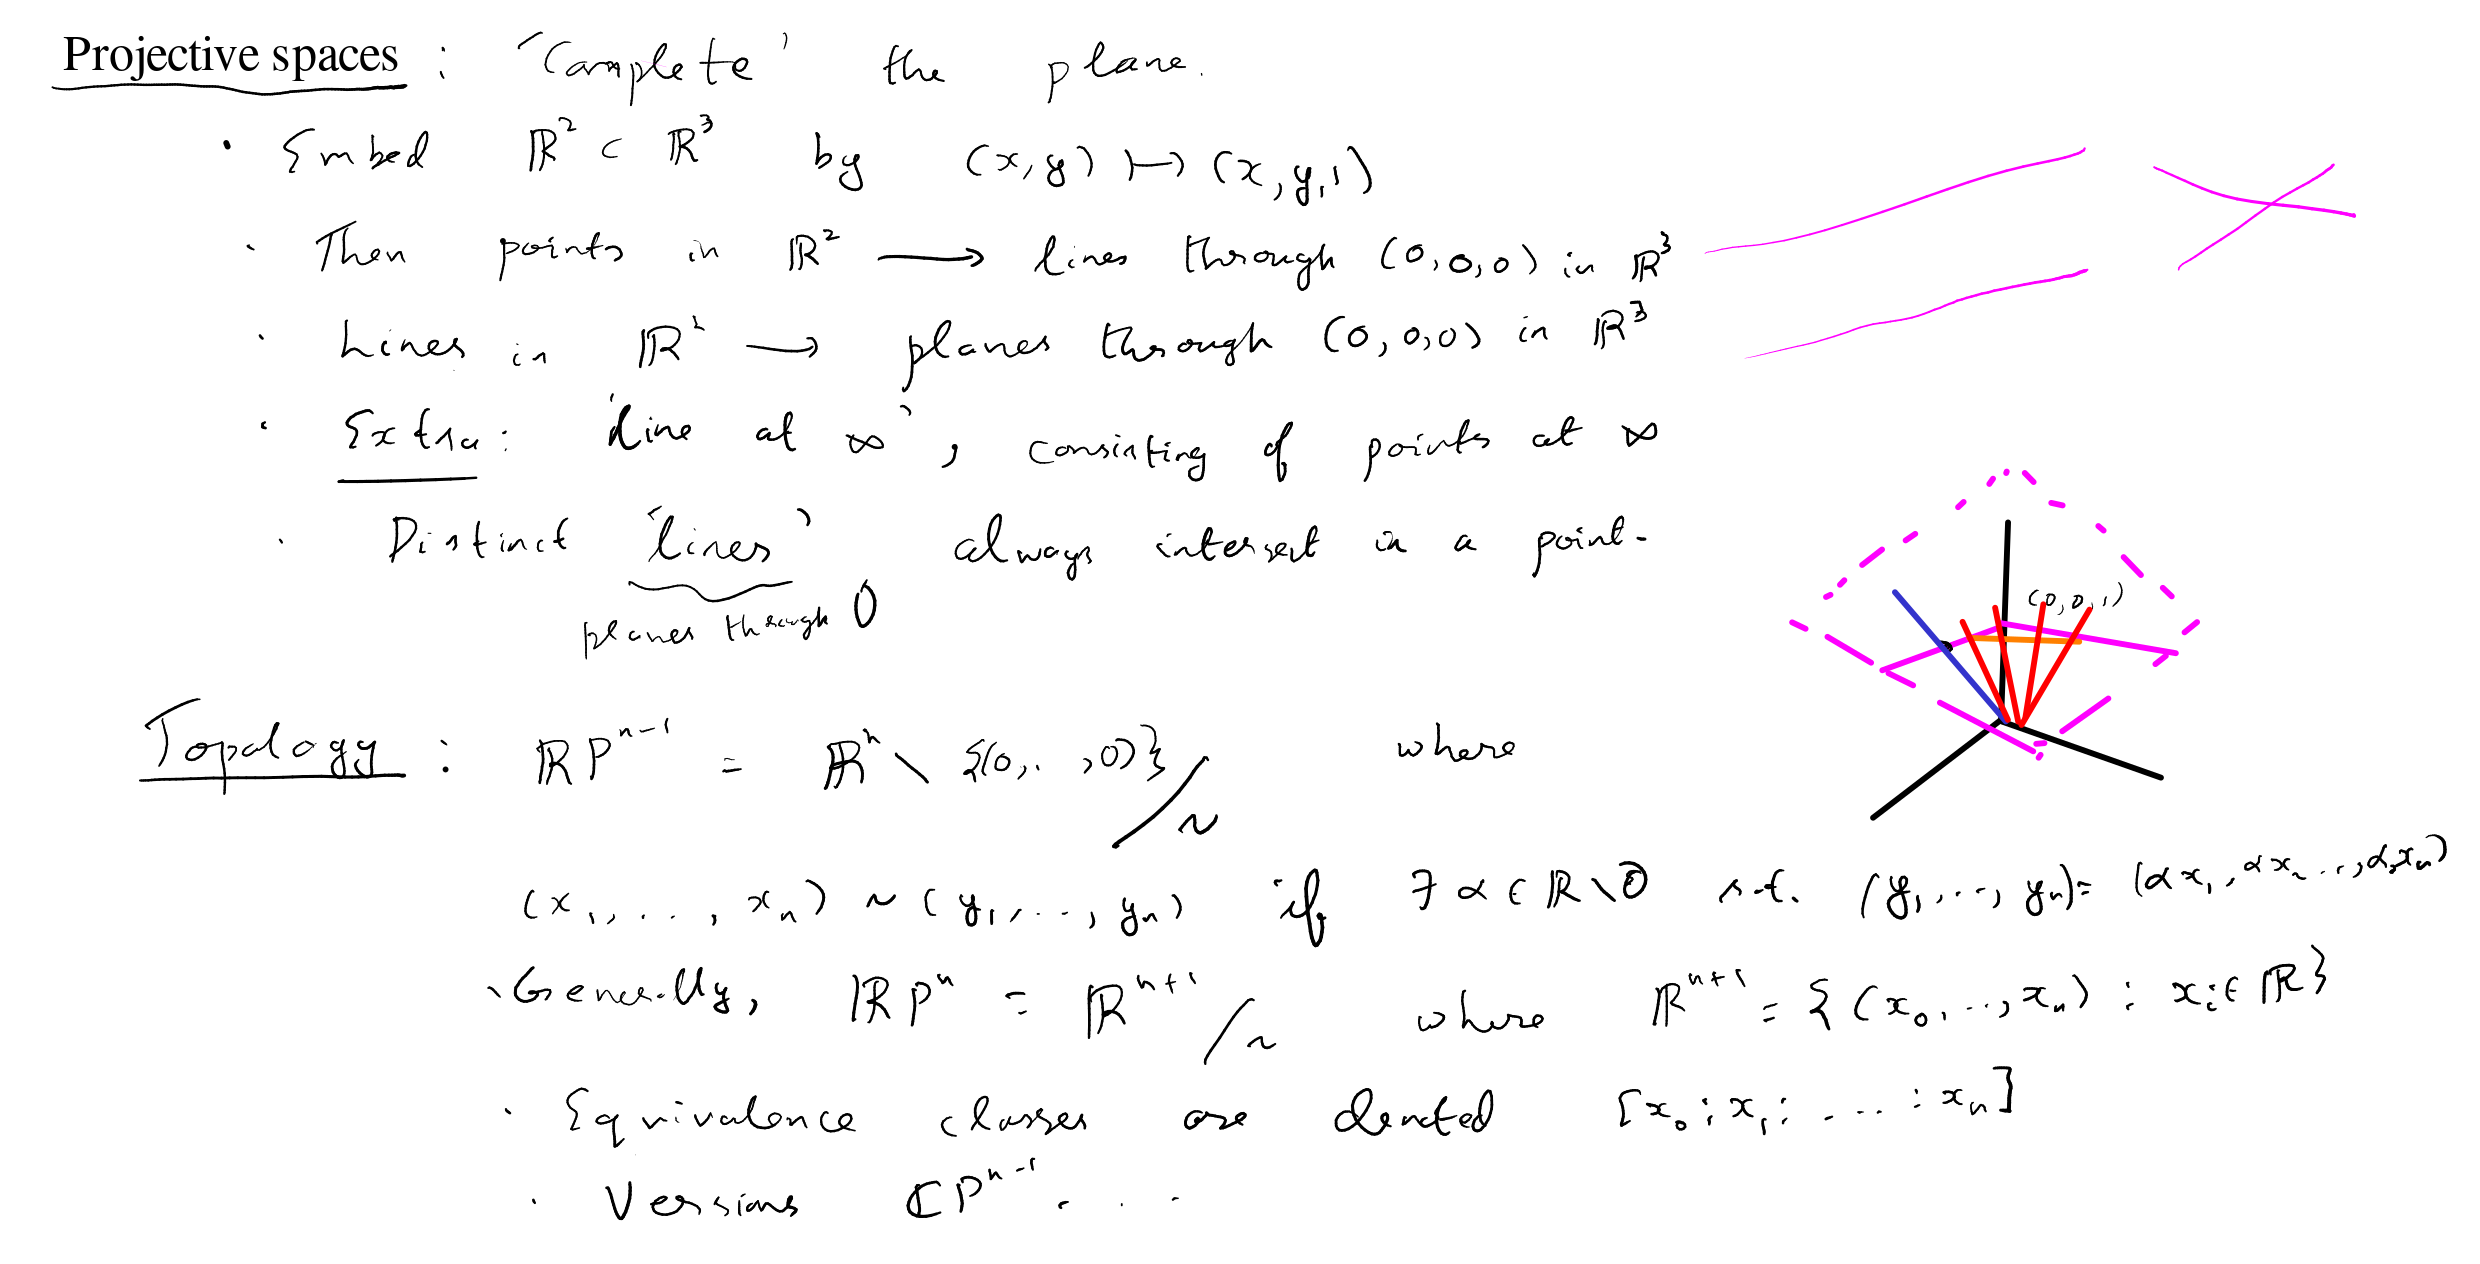 Projective spaces : 'Complete' the plane.
· Embed ℝ² ⊂ ℝ³ by (x,y) ↦ (x,y,1)
· Then points in ℝ² ⟶ lines through (0,0,0) in ℝ³
· Lines in ℝ² ⟶ planes through (0,0,0) in ℝ³
· Extra : 'Line at ∞', consisting of points at ∞
· Distinct 'lines' always intersect in a point.
planes through 0
(0,0,1)
Topology : ℝP^{n-1} = ℝ^n \ {(0,..,0)}/~ where
(x₁,...,x_n) ~ (y₁,...,y_n) if ∃ α ∈ ℝ\0 s.t. (y₁,...,y_n) = (αx₁, αx₂...,αx_n)
· Generally, ℝP^n = ℝ^{n+1}/~ where ℝ^{n+1} = {(x₀,...,x_n) : x_i ∈ ℝ}
· Equivalence classes are denoted [x₀ : x₁ : .... : x_n]
· Versions ℂP^{n-1} . . .